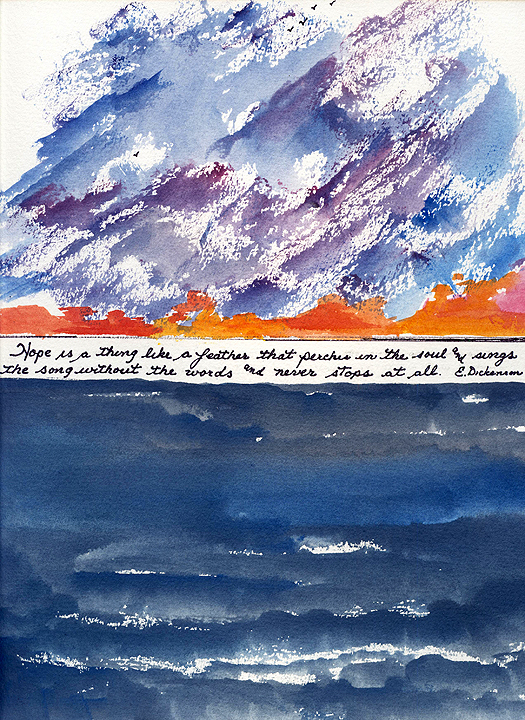 Hope is a thing like a feather that perches in the soul and sings
the song without the words and never stops at all. E. Dickenson